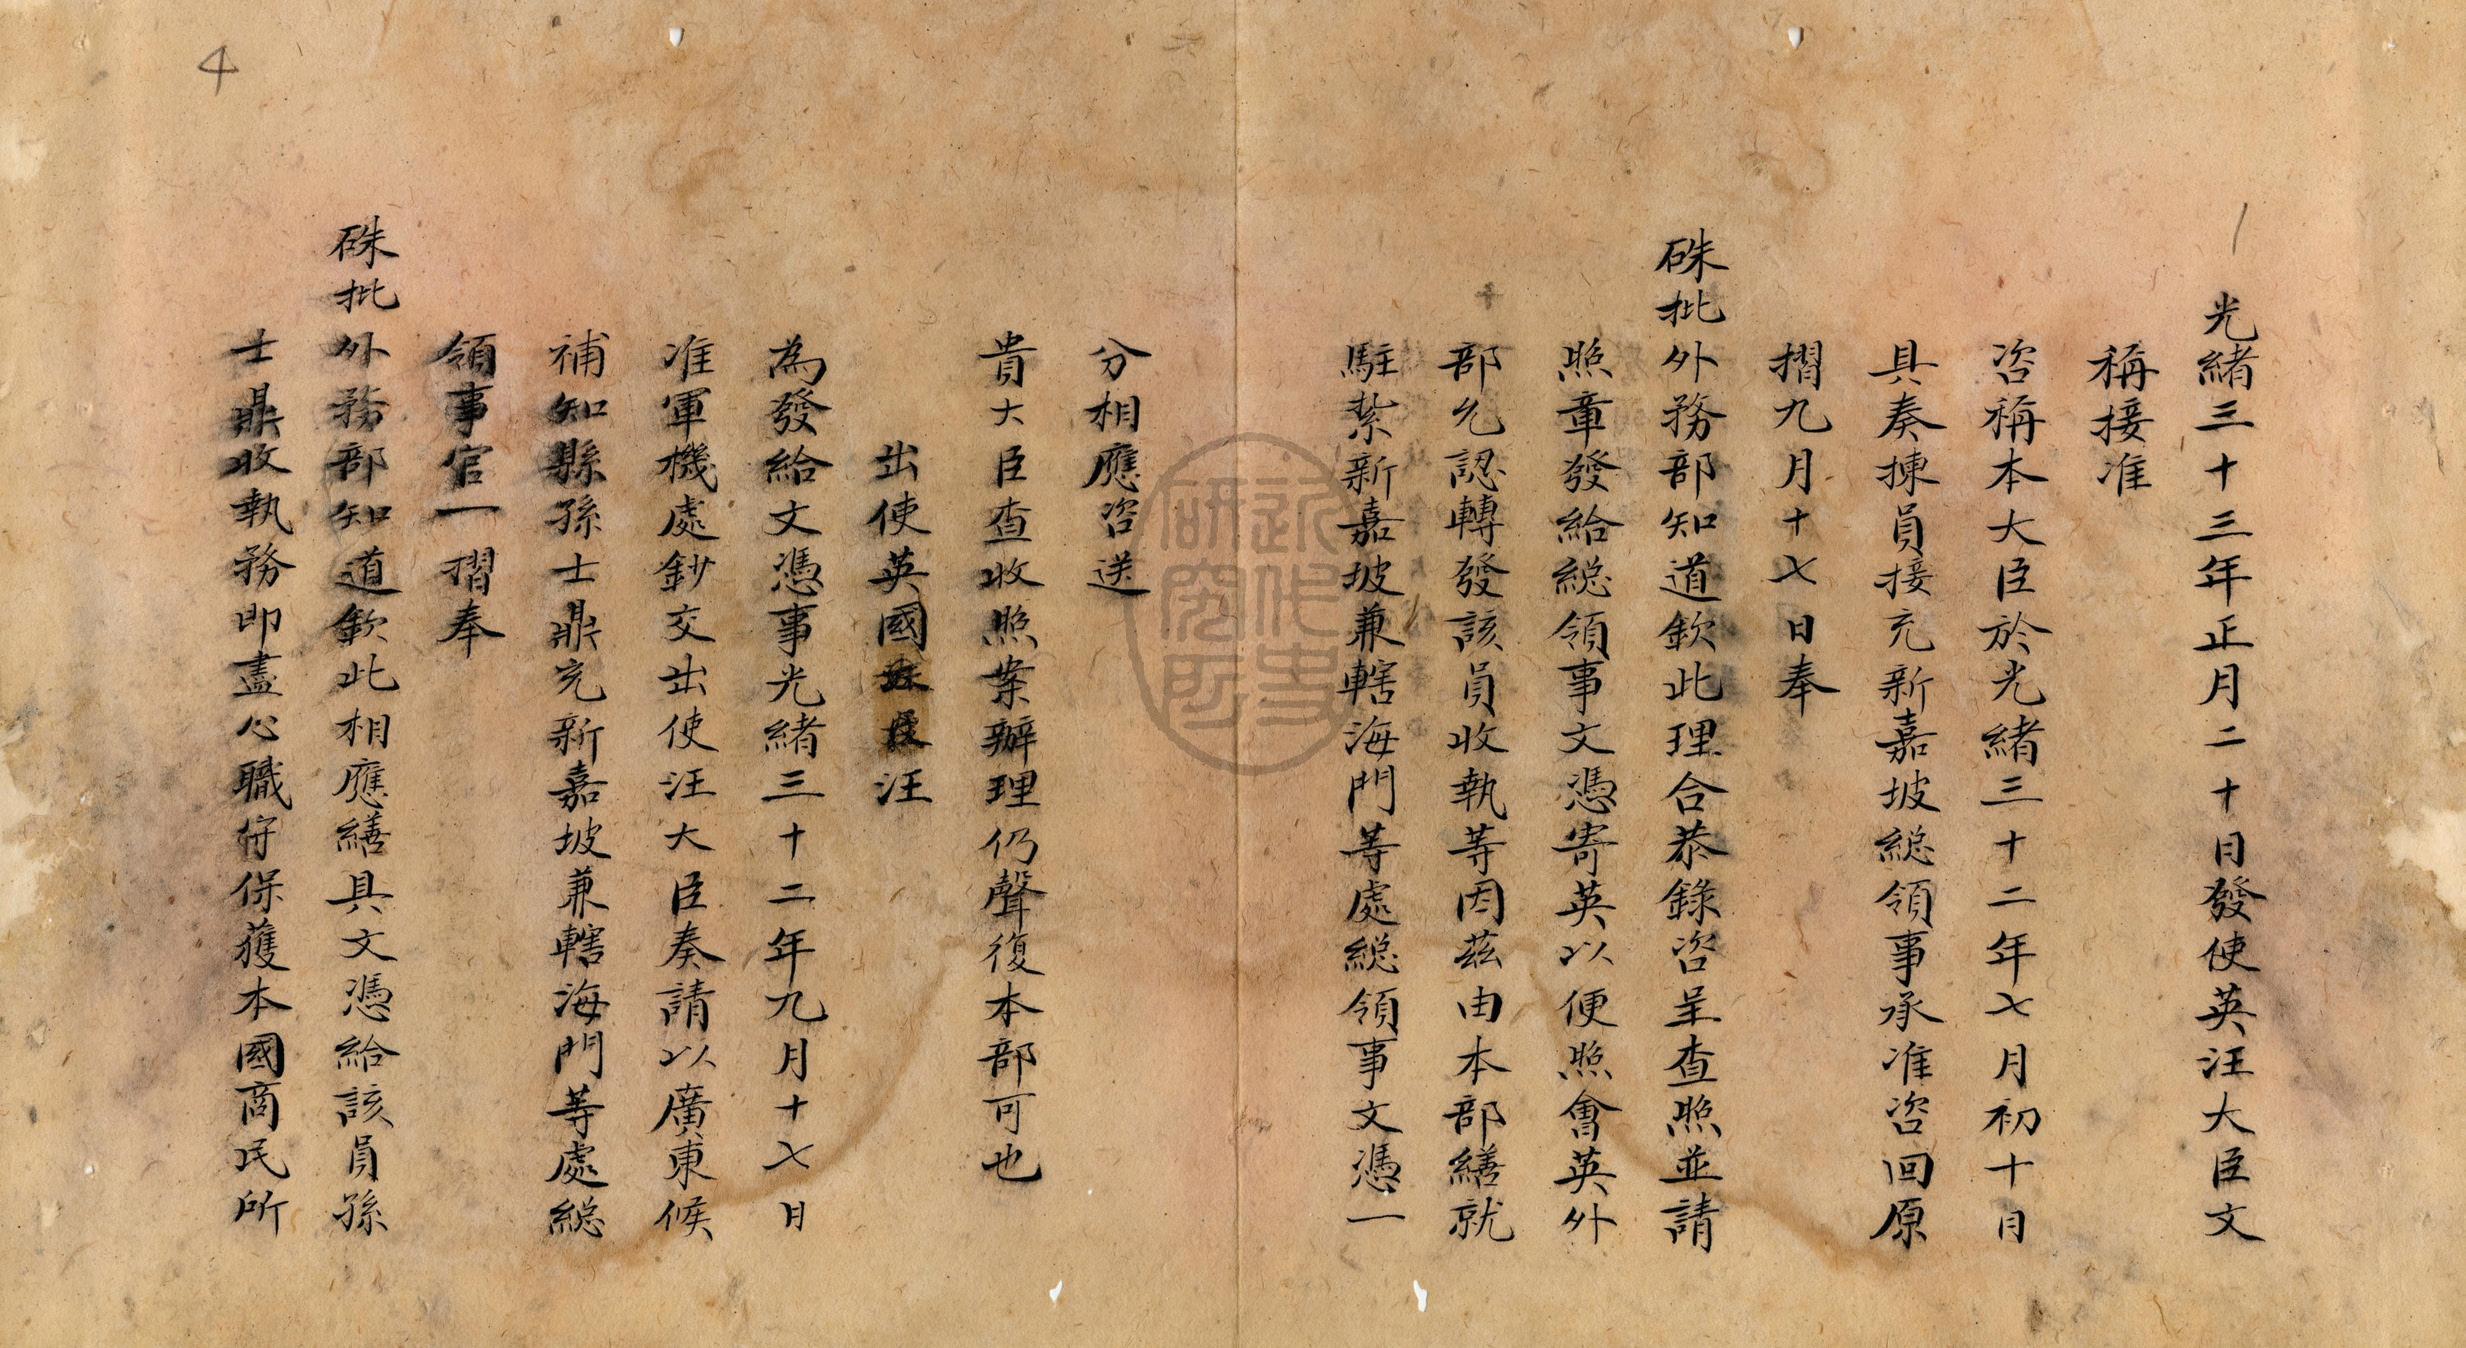 光緒三十三年正月二十日發使英汪大臣文
稱接准
咨稱本大臣於光緒三十二年七月初十日
具奏揀員接充新嘉坡總領事承准咨回原
摺九月十七日奉
硃批外務部知道欽此理合恭錄咨呈查照並請
照章發給總領事文憑寄英以便照會英外
部允認轉發該員收執等因茲由本部繕就
駐紮新嘉坡兼轄海門等處總領事文憑一
分相應咨送
貴大臣查收照案辦理仍聲復本部可也
出使英國汪
為發給文憑事光緒三十二年九月十七日
准軍機處鈔交出使汪大臣奏請以廣東候
補知縣孫士鼎充新嘉坡兼轄海門等處總
領事官一摺奉
硃批外務部知道欽此相應繕具文憑給該員孫
士鼎收執務即盡心職守保護本國商民所
4
近代史研究所